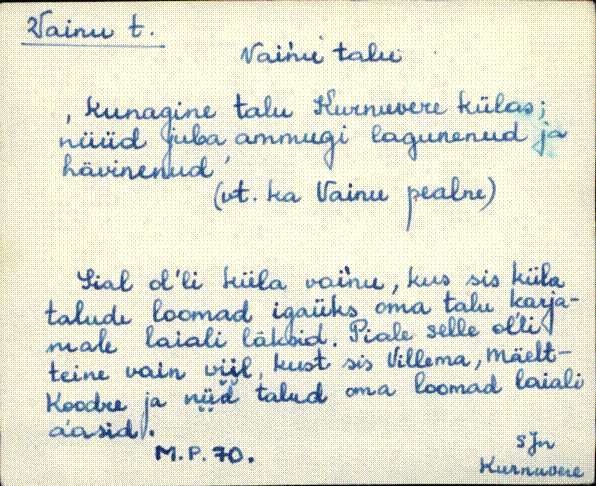 Vainu t.
Vainu talu
, kunagine talu Kurnuvere külas;
nüüd juba ammugi lagunenud ja
hävinenud'
(vt. ka Vainu pealne)
Sial ol'li küla vai'nu, kus sis küla
talude loomad igaüks oma talu karja-
male laiali läksid. Piale selle ol'li
teine vain viil, kust sis Villema, Mäelt-
Koodre ja nüid talud oma loomad laiali
a'asid'.
M.P. 70.
SJn
Kurnuvere